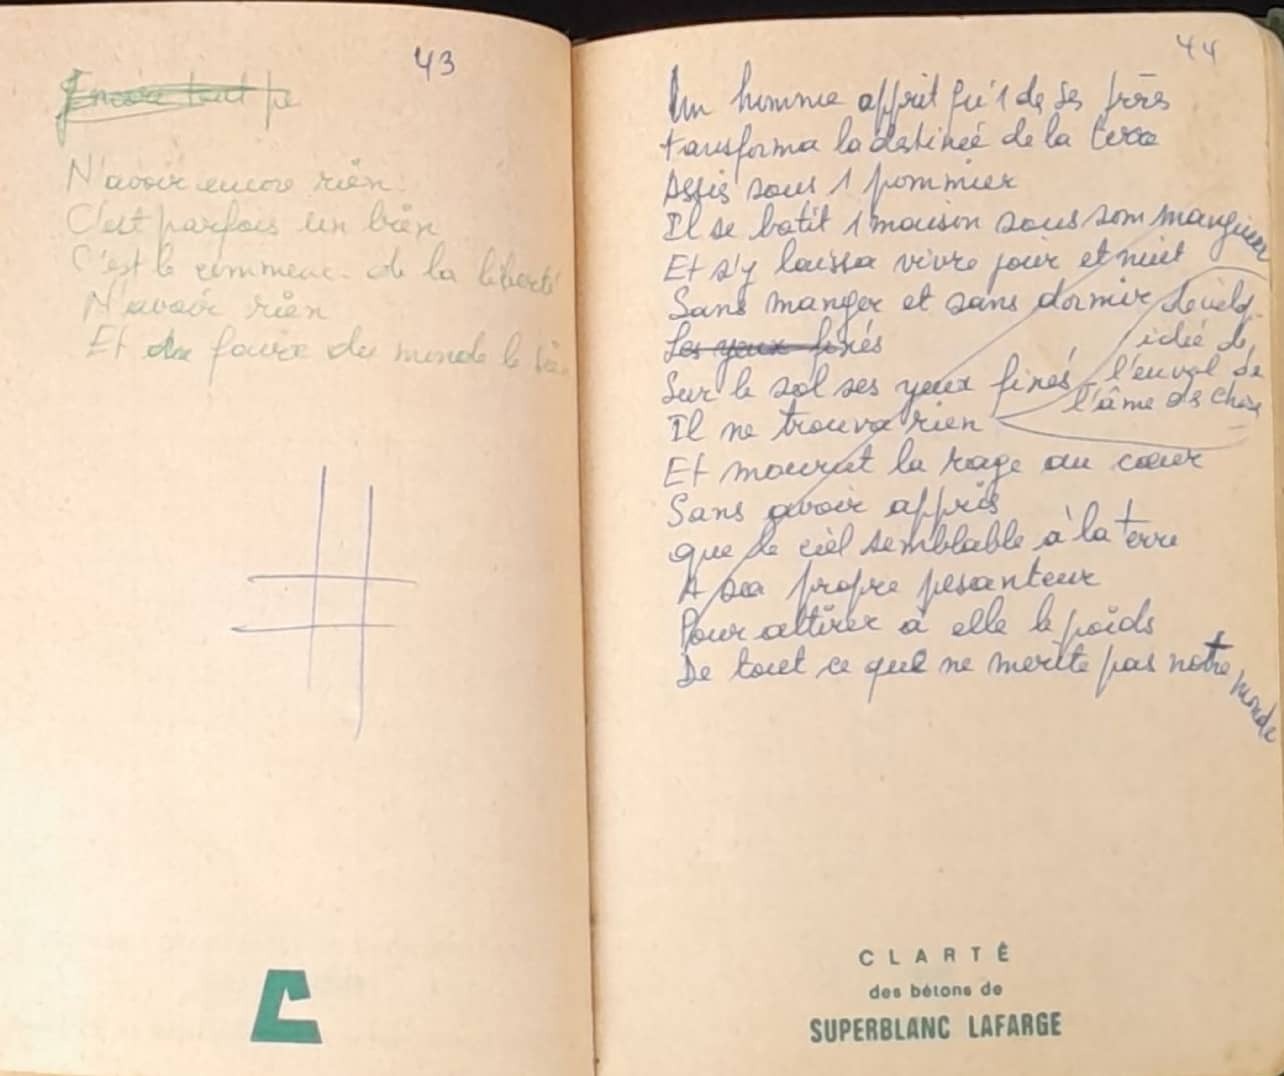 43
Encore tout pe
N'avoir encore rien
C'est parfois un bien
C'est le commenc. de la liberté
N'avoir rien
Et faire du monde le
44
Un homme apprit qu'1 de ses frères
transforma la destinée de la terre
Assis sous 1 pommier
Il se batit 1 maison sous son manguier
Et s'y laissa vivre jour et nuit
Sans manger et sans dormir
Les yeux fixés
Sur le sol ses yeux fixés
Il ne trouva rien
idée de
l'envol de
l'âme des choses
Et mourut la rage au cœur
Sans avoir appris
que le ciel semblable à la terre
A sa propre pesanteur
Pour attirer à elle le poids
De tout ce qui ne merite pas notre monde
CLARTÉ
des bétons de
SUPERBLANC LAFARGE